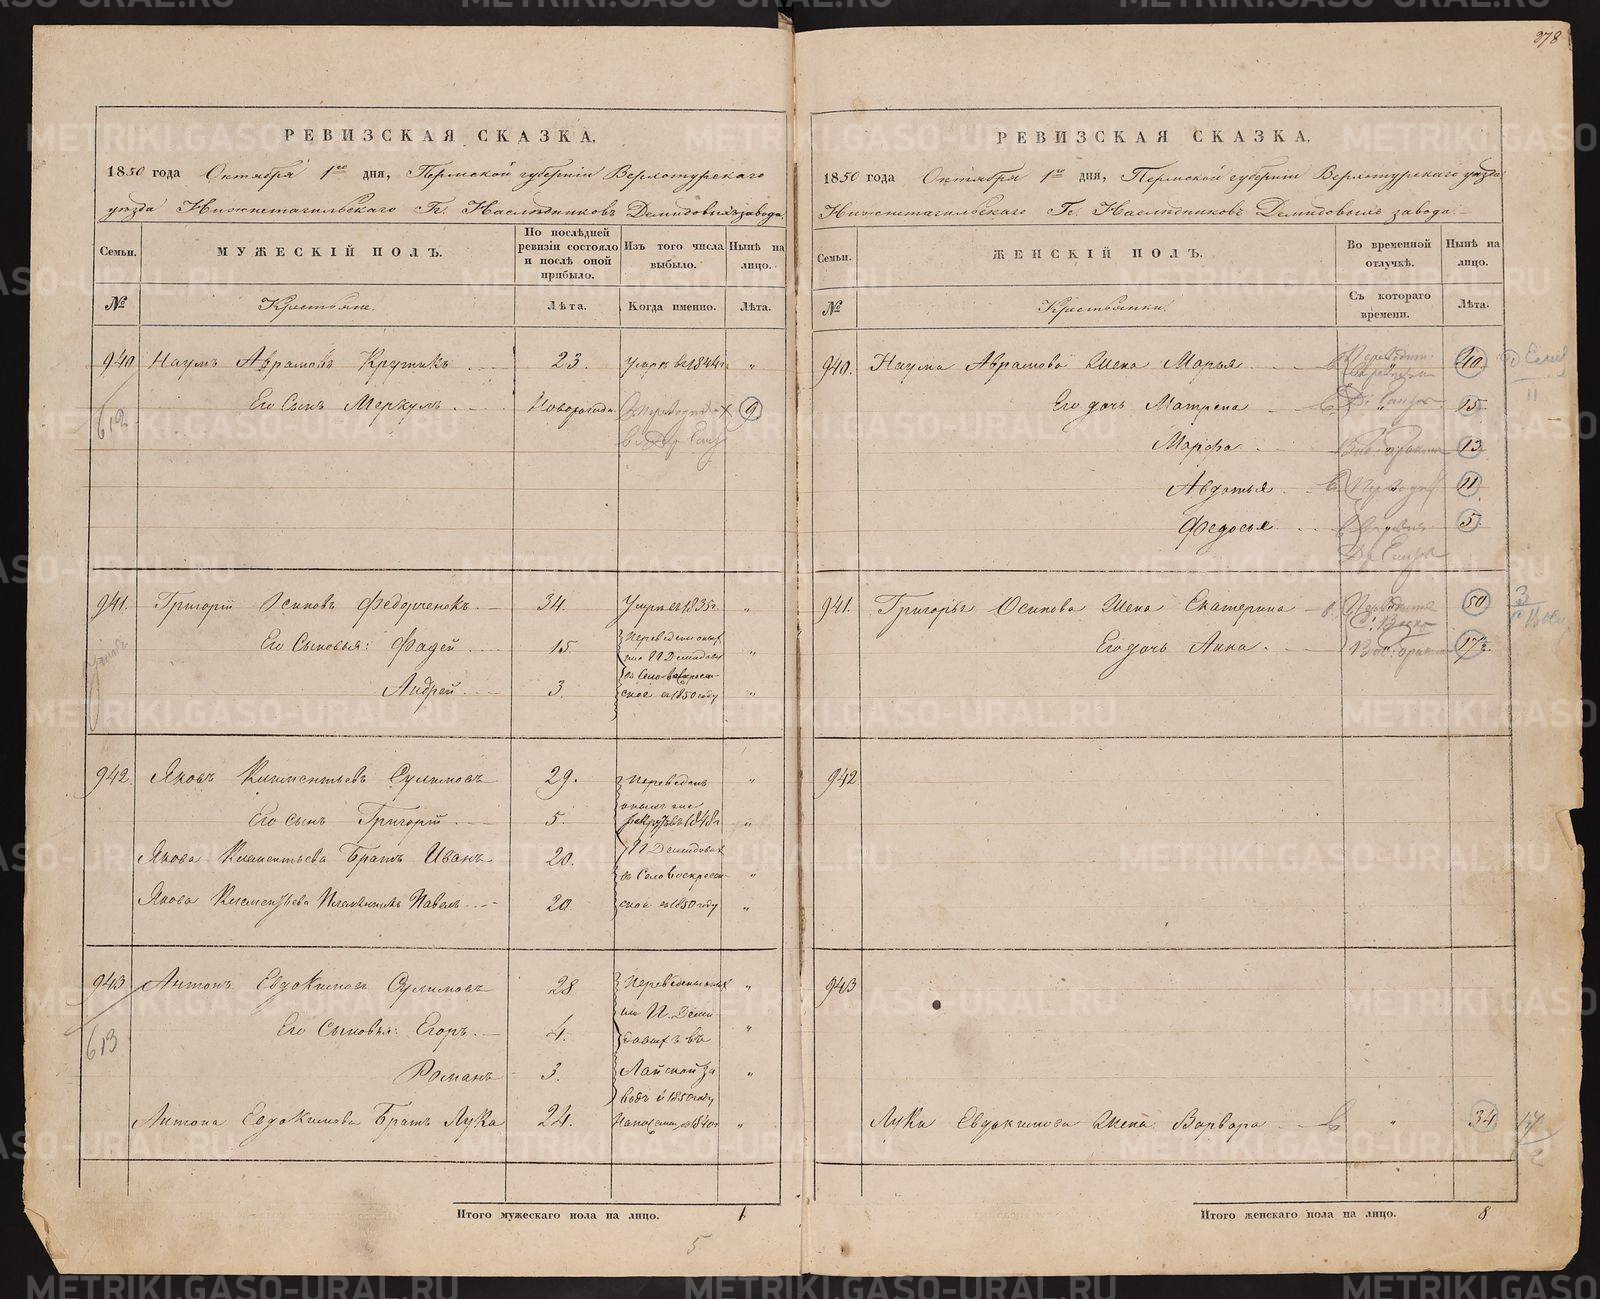 378
РЕВИЗСКАЯ СКАЗКА.
1850 года Октября 1го дня, Пермской губерніи Верхотурскаго
уѣзда Нижнетагильскаго Гг. Наслѣдниковъ Демидовыхъ завода.
Семьи. МУЖЕСКІЙ ПОЛЪ. По послѣдней ревизіи состояло и послѣ оной прибыло. Изъ того числа выбыло. Нынѣ на лицо.
№ Крестьяне. Лѣта. Когда именно. Лѣта.
940 Наумъ Абрамовъ Крутикъ 23. Умръ въ 1844г. "
612 Его Сынъ Меркулъ Новорожден. 9
941. Григорій Осиповъ Федорченокъ 34. Умръ въ 1835г. "
Его Сыновья: Фадей 15 Переведены "
Андрей 3. въ Село Воскресен-
ское въ 1850 году "
942. Яковъ Климентьевъ Сулимовъ 29. Переведенъ "
Его сынъ Григорій 5. "
Якова Климентьева Братъ Иванъ 20. П. Демидовыхъ
въ Село Воскресен- "
Якова Климентьева Племянникъ Павелъ 20. ское въ 1850 году "
943 Антонъ Евдокимовъ Сулимовъ 28 Переведены "
613 Его Сыновья: Егоръ. 4. "
Романъ 3. Лайской за "
водъ в 1850 году
Антона Евдокимова Братъ Лука 24. "
Итого мужескаго пола на лицо. 1
5
РЕВИЗСКАЯ СКАЗКА.
1850 года Октября 1го дня, Пермской губерніи Верхотурскаго уѣзда
Нижнетагильскаго Гг. Наслѣдниковъ Демидовыхъ завода.
Семьи. ЖЕНСКІЙ ПОЛЪ. Во временной отлучкѣ. Нынѣ на лицо.
№ Крестьянки. Съ котораго времени. Лѣта.
940. Наума Абрамова Жена Марья 40
Его дочь Матрена " 15
Марфа 13
Авдотья 11
Федосья 5
941. Григорья Осипова Жена Екатерина 50
Его дочь Анна. 17
942
943
Луки Евдокимова Жена Варвара " 34
Итого женскаго пола на лицо. 8
METRIKI.GASO-URAL.RU